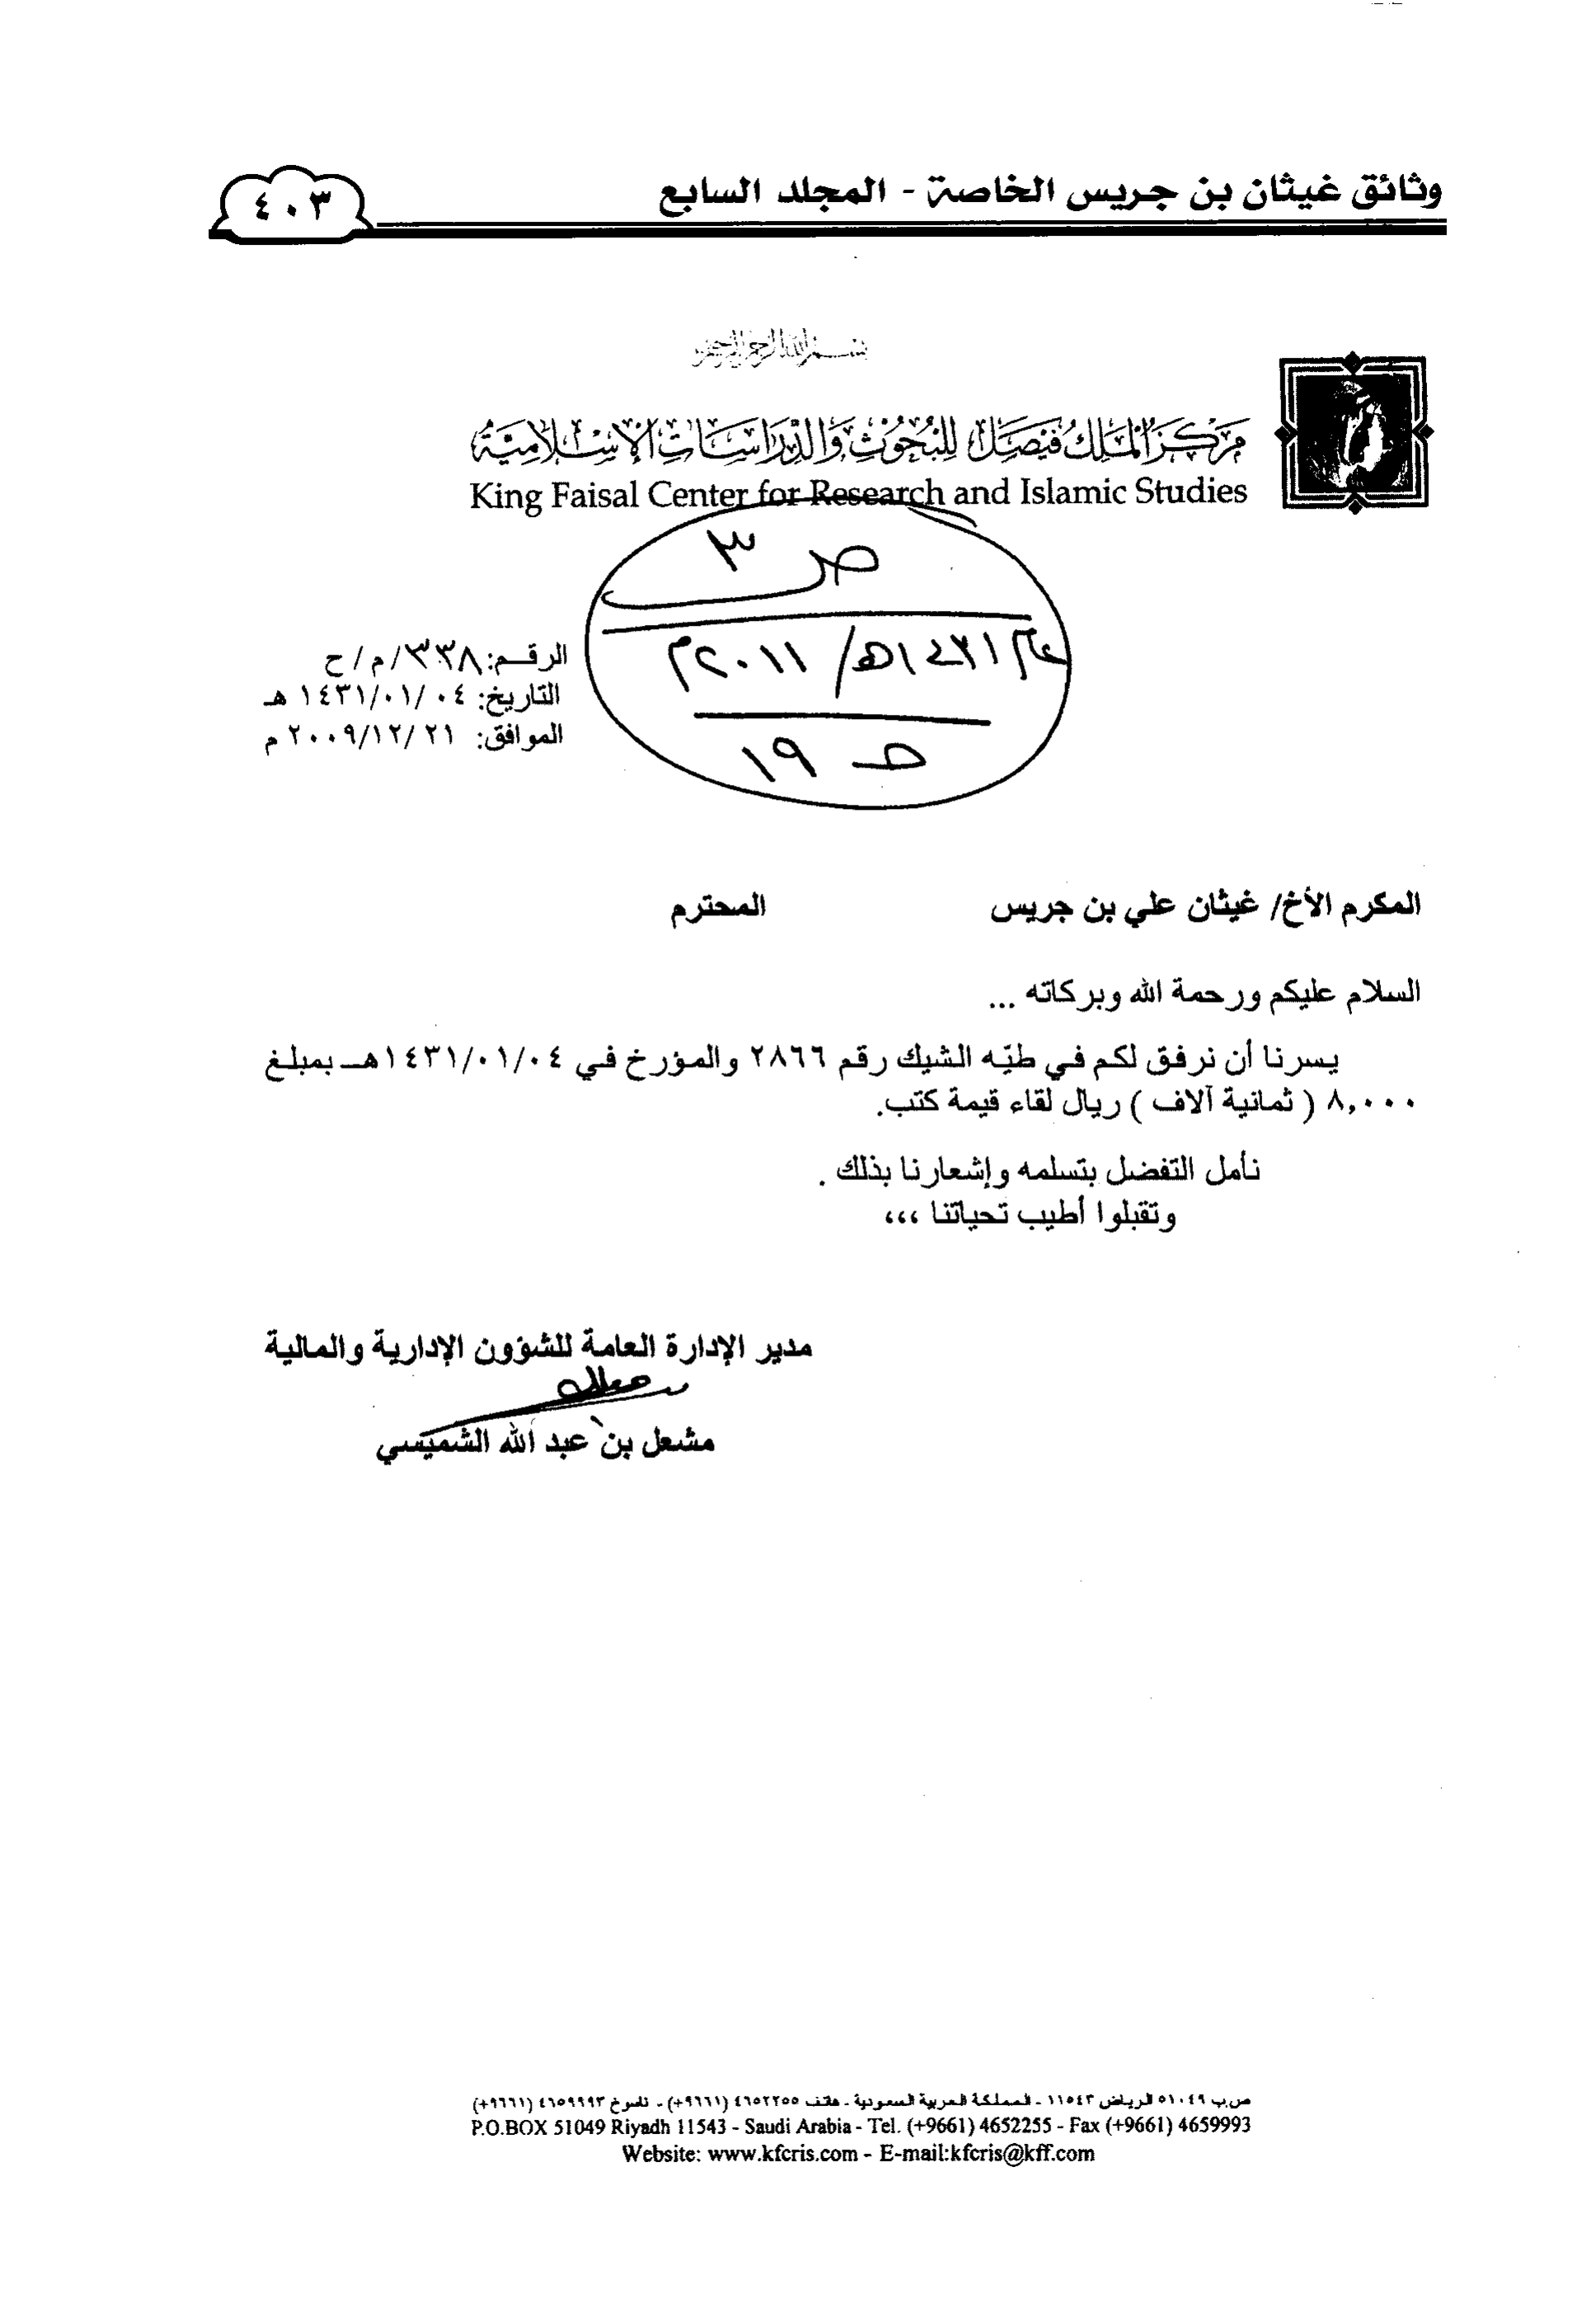 وثائق غيثان بن جريس الخاصة - المجلد السابع
٤٠٣
بسم الله الرحمن الرحيم
مركز الملك فيصل للبحوث والدراسات الإسلامية
King Faisal Center for Research and Islamic Studies
ص ٣
عام ١٤٣١هـ/ ٢٠١١م
صـ ١٩
الرقم: ٣٣٨/م/ح
التاريخ: ١٤٣١/٠١/٠٤ هـ
الموافق: ٢٠٠٩/١٢/٢١ م
المكرم الأخ/ غيثان علي بن جريس المحترم
السلام عليكم ورحمة الله وبركاته ...
يسرنا أن نرفق لكم في طيّه الشيك رقم ٢٨٦٦ والمؤرخ في ١٤٣١/٠١/٠٤هـ بمبلغ
٨,٠٠٠ ( ثمانية آلاف ) ريال لقاء قيمة كتب.
نأمل التفضل بتسلمه وإشعارنا بذلك .
وتقبلوا أطيب تحياتنا ،،،
مدير الإدارة العامة للشؤون الإدارية والمالية
مشعل بن عبد الله الشميسي
ص.ب ٥١٠٤٩ الرياض ١١٥٤٣ - المملكة العربية السعودية - هاتف ٤٦٥٢٢٥٥ (٩٦٦١+) - ناسوخ ٤٦٥٩٩٩٣ (٩٦٦١+)
P.O.BOX 51049 Riyadh 11543 - Saudi Arabia - Tel. (+9661) 4652255 - Fax (+9661) 4659993
Website: www.kfcris.com - E-mail:kfcris@kff.com